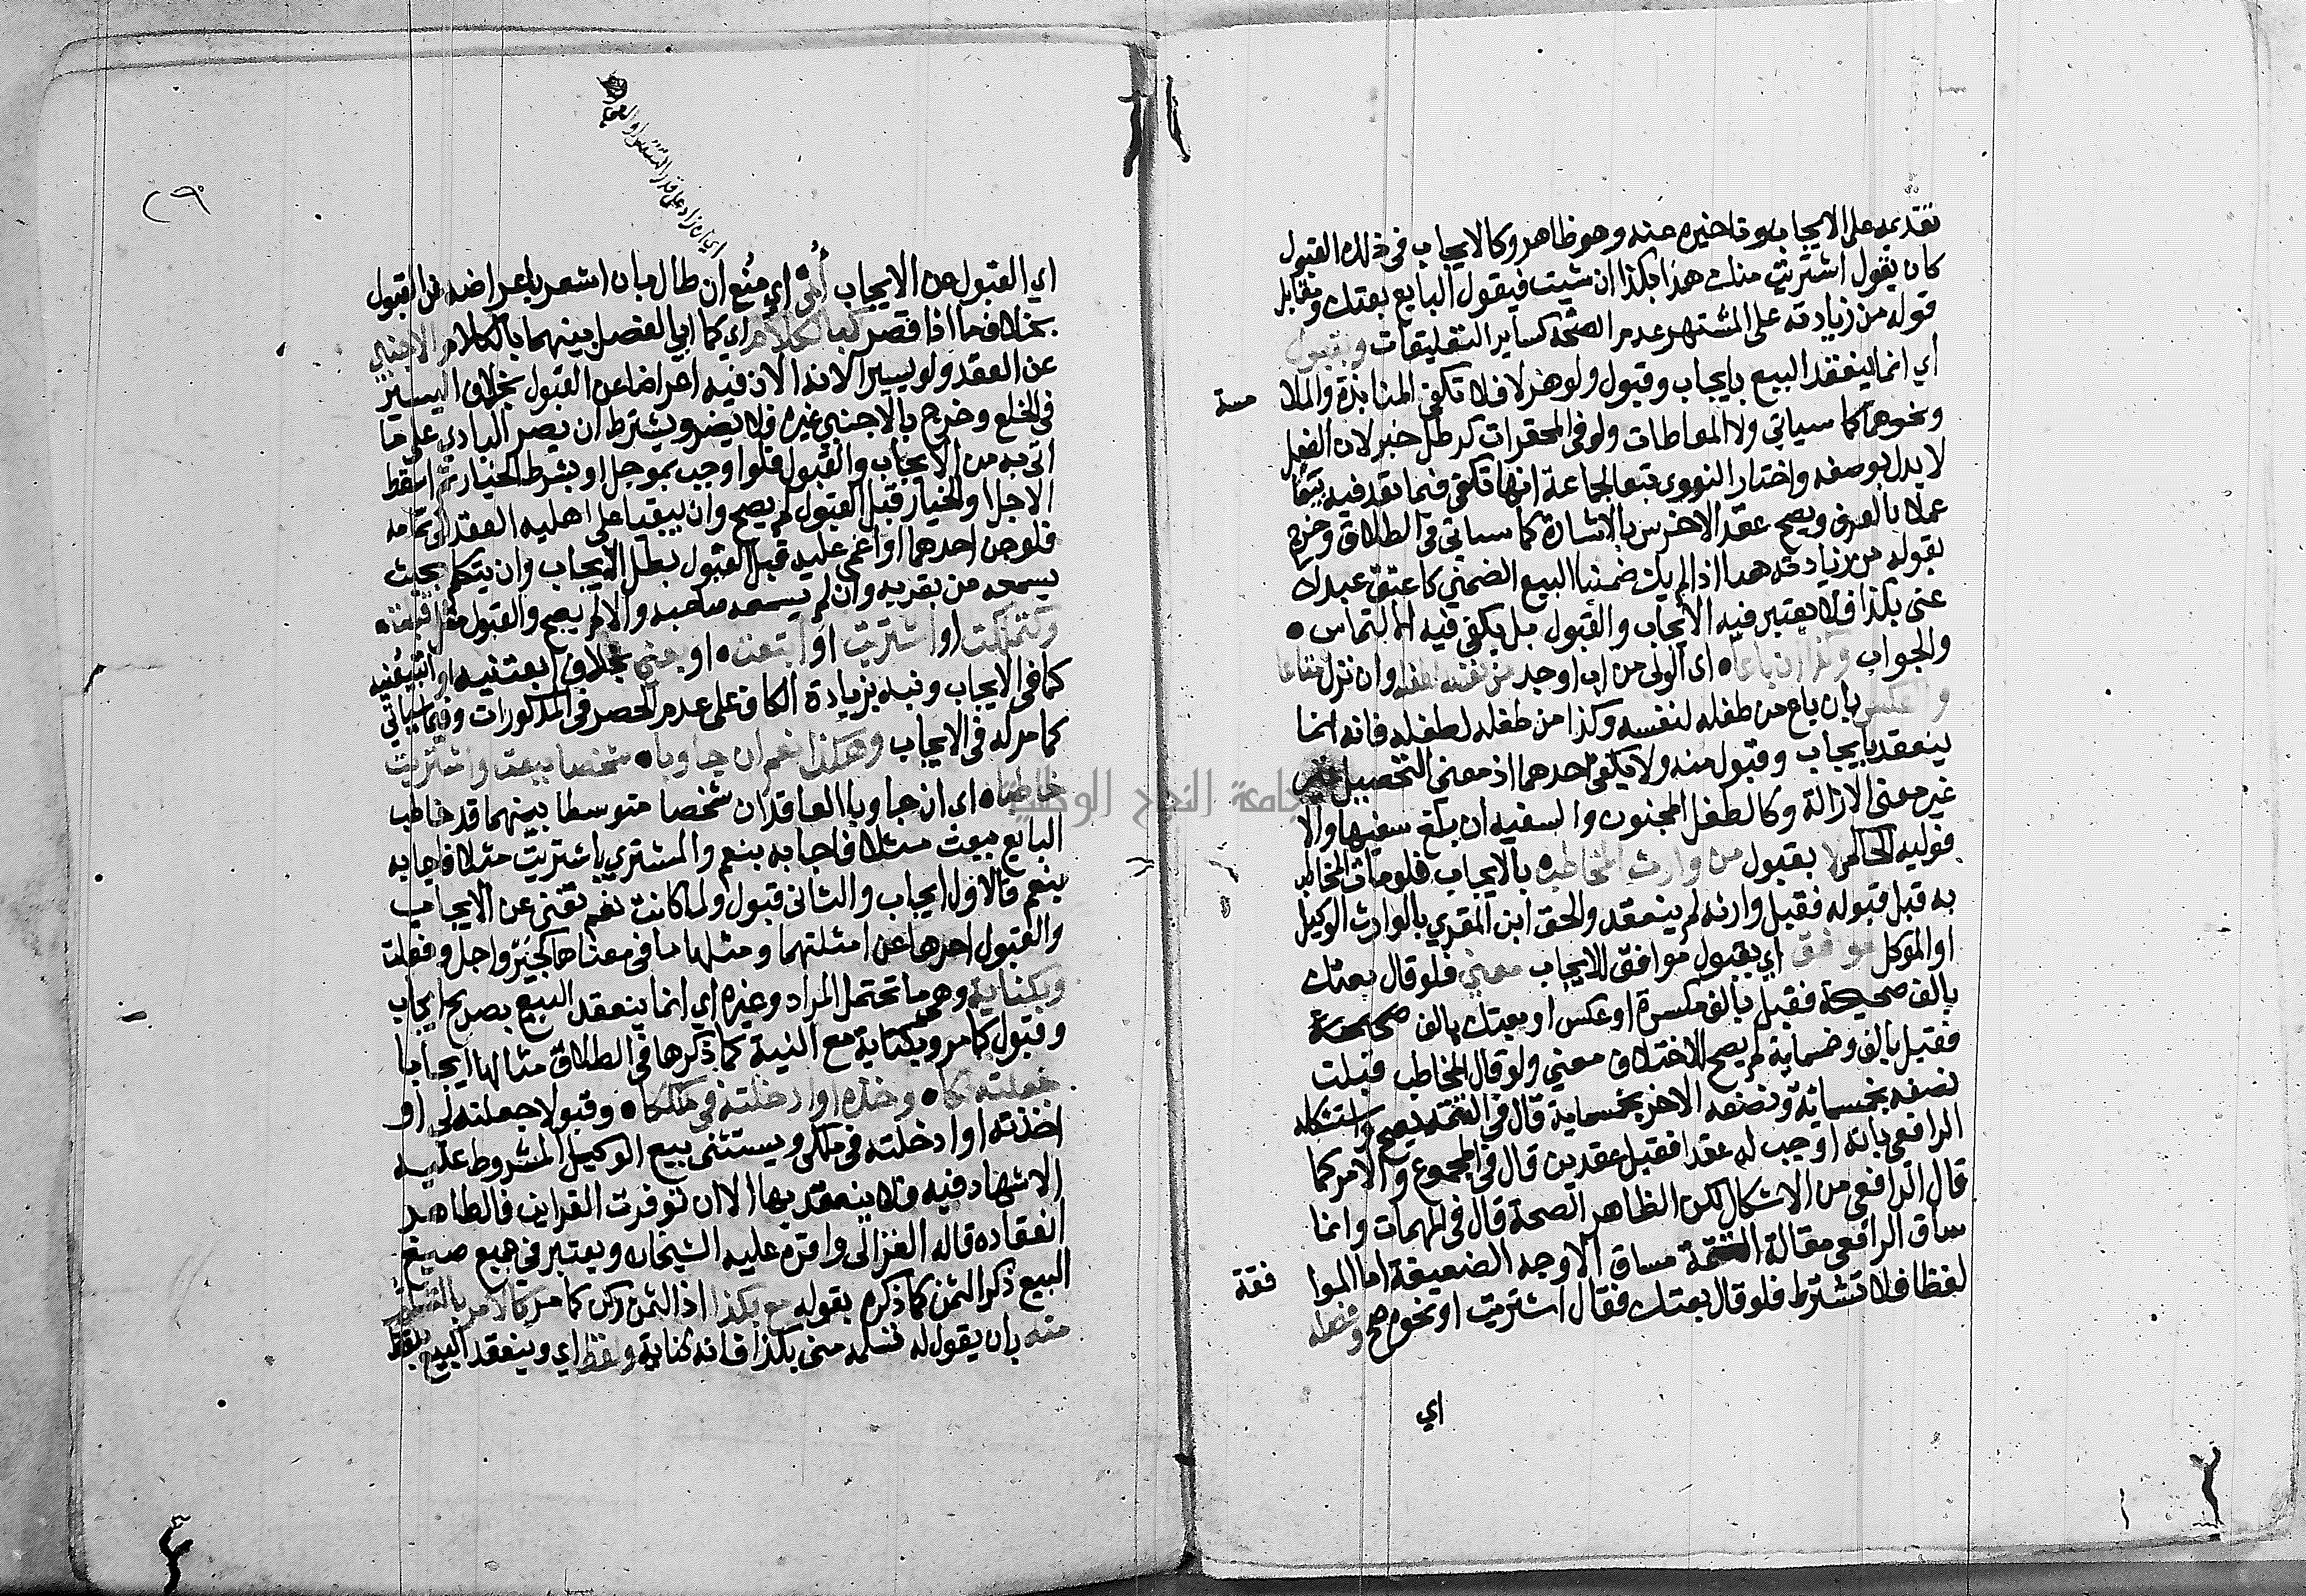 تقديمه على الايجاب وتاخيره عنه وهو ظاهر وكالايجاب في ذلك القبول
كان يقول اشتريت منك هذا بكذا ان شيت فيقول البايع بعتك ومقابل
قوله من زيادته على المشتهر عدم الصحة كساير التعليقات وبقبول
اي انما ينعقد البيع بايجاب وقبول ولو هزلا فلا تكفي المنابذة والملا مسة
ونحوهما كما سياتي ولا المعاطات ولو في المحقرات كرطل خبز لان الفعل
لا يدل بوضعه واختار النووي تبعا لجماعة انها تكفي فيما تعد فيه بيعا
عملا بالعرف ويصح عقد الاخرس بالاشارة كما سياتي في الطلاق وخرج
بقوله من زيادته هما اذا لم يك ضمنيا البيع الضمني كاعتق عبدك
عني بكذا فلا يعتبر فيه الايجاب والقبول بل يكفي فيه الالتماس
والجواب وكذا ان باعا اي الولي من اب او جد من نفسه لطفله وان نزل متاعا
والعكس بان باع من طفله لنفسه وكذا من طفله لطفله فانه انما
ينعقد بايجاب وقبول منه ولا يكفي احدهما اذ معنى التحصيل
غير معنى الازالة وكالطفل المجنون والسفيه ان بلغ سفيها والا
فوليه الحاكم لا بقبول من وارث المخاطب بالايجاب فلو مات المخاطب
به قبل قبوله فقبل وارثه لم ينعقد والحق ابن المقري بالوارث الوكيل
او الموكل موافق اي بقبول موافق للايجاب معني فلو قال بعتك
بالف صحيحة فقبل بالف مكسرة او عكس او بعتك بالف
فقبل بالف وخمساية لم يصح للاختلاف معني ولو قال المخاطب قبلت
نصفه بخمساية ونصفه الاخر بخمساية قال في التتمة يصح واستشكله
الرافعي بانه اوجب له عقدا فقبل عقدين قال في المجموع والامر كما
قال الرافعي من الاشكال لكن الظاهر الصحة قال في المهمات وانما
ساق الرافعي مقالة التتمة مساق الاوجه الضعيفة اما الموا فقة
لفظا فلا تشترط فلو قال بعتك فقال اشتريت او نحوه صح وفصله
اي
٢٩
اي ان زاد على قدر التنفس او العي
اي القبول من الايجاب أُبي اي مُنع ان طال بان اشعر باعراضه عن القبول
بخلاف ما اذا قصر كبالكلام اي كما ابي الفصل بينهما بالكلام الاجنبي
عن العقد ولو يسيرا لانه الان فيه اعراضا عن القبول بخلاف اليسير
في الخلع وخرج بالاجنبي غيره فلا يضر ويشترط ان يصر البادي على ما
اتى به من الايجاب والقبول فلو اوجب بموجل او بشرط الخيار ثم اسقط
الاجل او الخيار قبل القبول لم يصح وان يبقيا على اهليه العقد الى تمامه
فلو جن احدهما او اغمي عليه قبل القبول بطل الايجاب وان يتكلم بحيث
يسمعه من بقربه وان لم يسمعه صاحبه والا لم يصح والقبول مثل قبلته
وكتملكت او اشتريت او ابتعت او بعني بخلاف ابعتنيه او
كما في الايجاب ونبه بزيادة الكاف على عدم الحصر في المذكورات وفيما سياتي
كما مر له في الايجاب وهكذا نعم ان جاوبا شخصا ببعت واشتريت
خاطبا اي ان جاوبا العاقدان شخصا متوسطا بينهما قد خاطب
البايع ببعت مثلا فاجابه بنعم والمشتري باشتريت مثلا فاجابه
بنعم فالاول ايجاب والثاني قبول ولما كانت نعم تغني عن الايجاب
والقبول اخرها عن امثلتهما ومثلها ما في معناها كجير واجل وفعلت
وبكناية وهي ما تحتمل المراد وغيره اي انما ينعقد البيع بصريح ايجاب
وقبول كما مر وبكناية مع النية كما ذكرها في الطلاق مثالها ايجابا
جعلته لكا وخذه او ادخلته في ملككا وقبولا جعلته لي او
اخذته او ادخلته في ملكي ويستثنى بيع الوكيل المشروط عليه
الاشهاد فيه فلا ينعقد بها الا ان توفرت القراين فالظاهر
انعقاده قاله الغزالي واقره عليه الشيخان ويعتبر في جميع صيغ
البيع ذكر الثمن كما ذكره بقوله مع بكذا اذ الثمن ركن كما مر كالامر
منه بان يقول له تسلمه مني بكذا فانه كناية ولفظ اي وينعقد البيع بلفظ